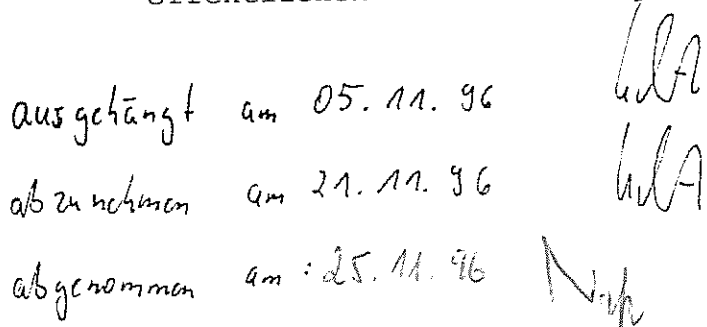 ausgehängt am 05.11.96
abzunehmen am 21.11.96
abgenommen am: 25.11.96